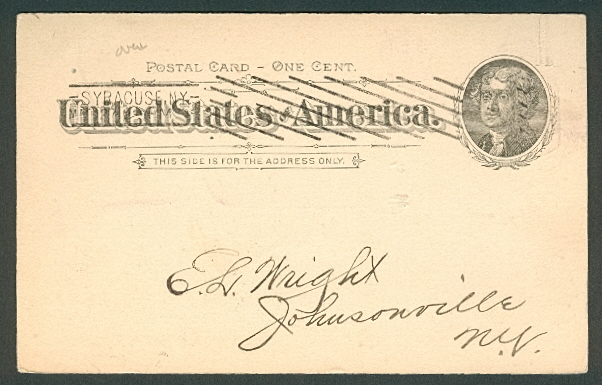 over
POSTAL CARD – ONE CENT.
SYRACUSE N.Y.
United States of America.
THIS SIDE IS FOR THE ADDRESS ONLY.
E. L. Wright
Johnsonville
N.Y.